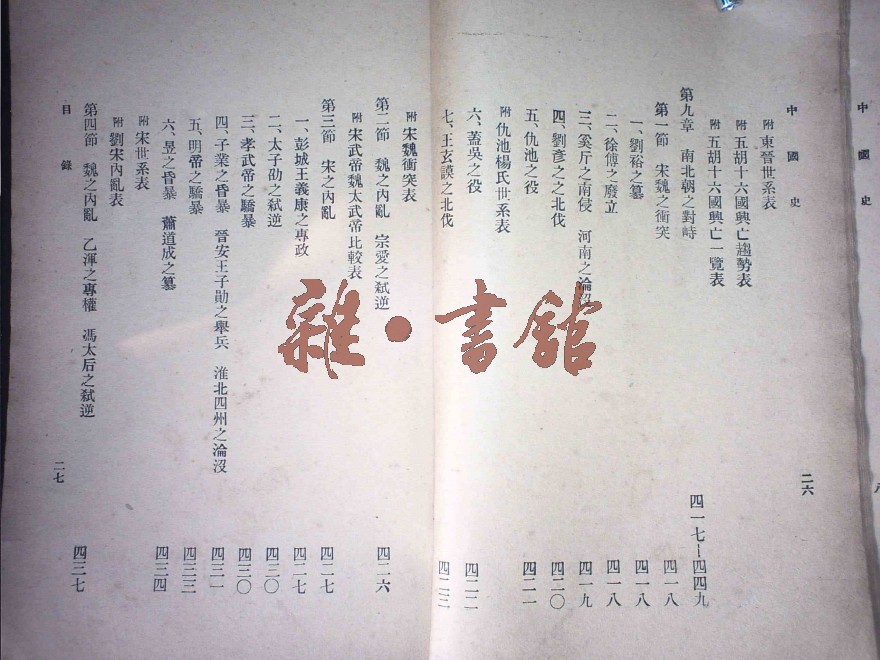 中國史
中國史
二六
附 東晉世系表
附 五胡十六國興亡趨勢表
附 五胡十六國興亡一覽表
第九章 南北朝之對峙 四一七—四四九
第一節 宋魏之衝突 四一八
一、劉裕之篡 四一八
二、徐傅之廢立 四一八
三、奚斤之南侵 河南之淪沒 四一九
四、劉彥之之北伐 四二〇
五、仇池之役 四二一
附 仇池楊氏世系表
六、蓋吳之役 四二二
七、王玄謨之北伐 四二三
附 宋魏衝突表
第二節 魏之內亂 宗愛之弒逆 四二六
附 宋武帝魏太武帝比較表
第三節 宋之內亂 四二七
一、彭城王義康之專政 四二七
二、太子劭之弒逆 四三〇
三、孝武帝之驕暴 四三〇
四、子業之昏暴 晉安王子勛之舉兵 淮北四州之淪沒 四三一
五、明帝之驕暴 四三三
六、昱之昏暴 蕭道成之篡 四三四
附 宋世系表
附 劉宋內亂表
第四節 魏之內亂 乙渾之專權 馮太后之弒逆 四三七
目錄
二七
雜·書館